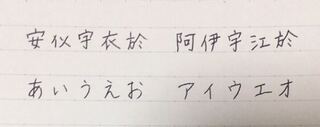 安以宇衣於　阿伊宇江於
あいうえお　アイウエオ